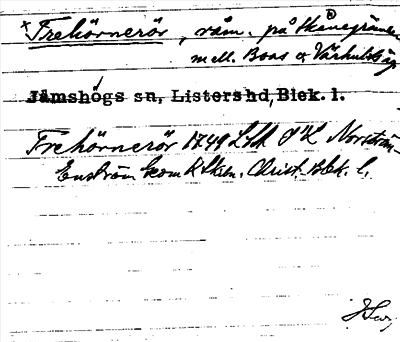 + Trehörnerör, råm. på Skånegränsen
mell. Boas o. Vårhults äg.
Jämshögs sn, Listers hd, Blek. l.
Trehörnerör 1749 Lth P H Norström-
Enström Geom K Skån. Christ.-Blek. l.